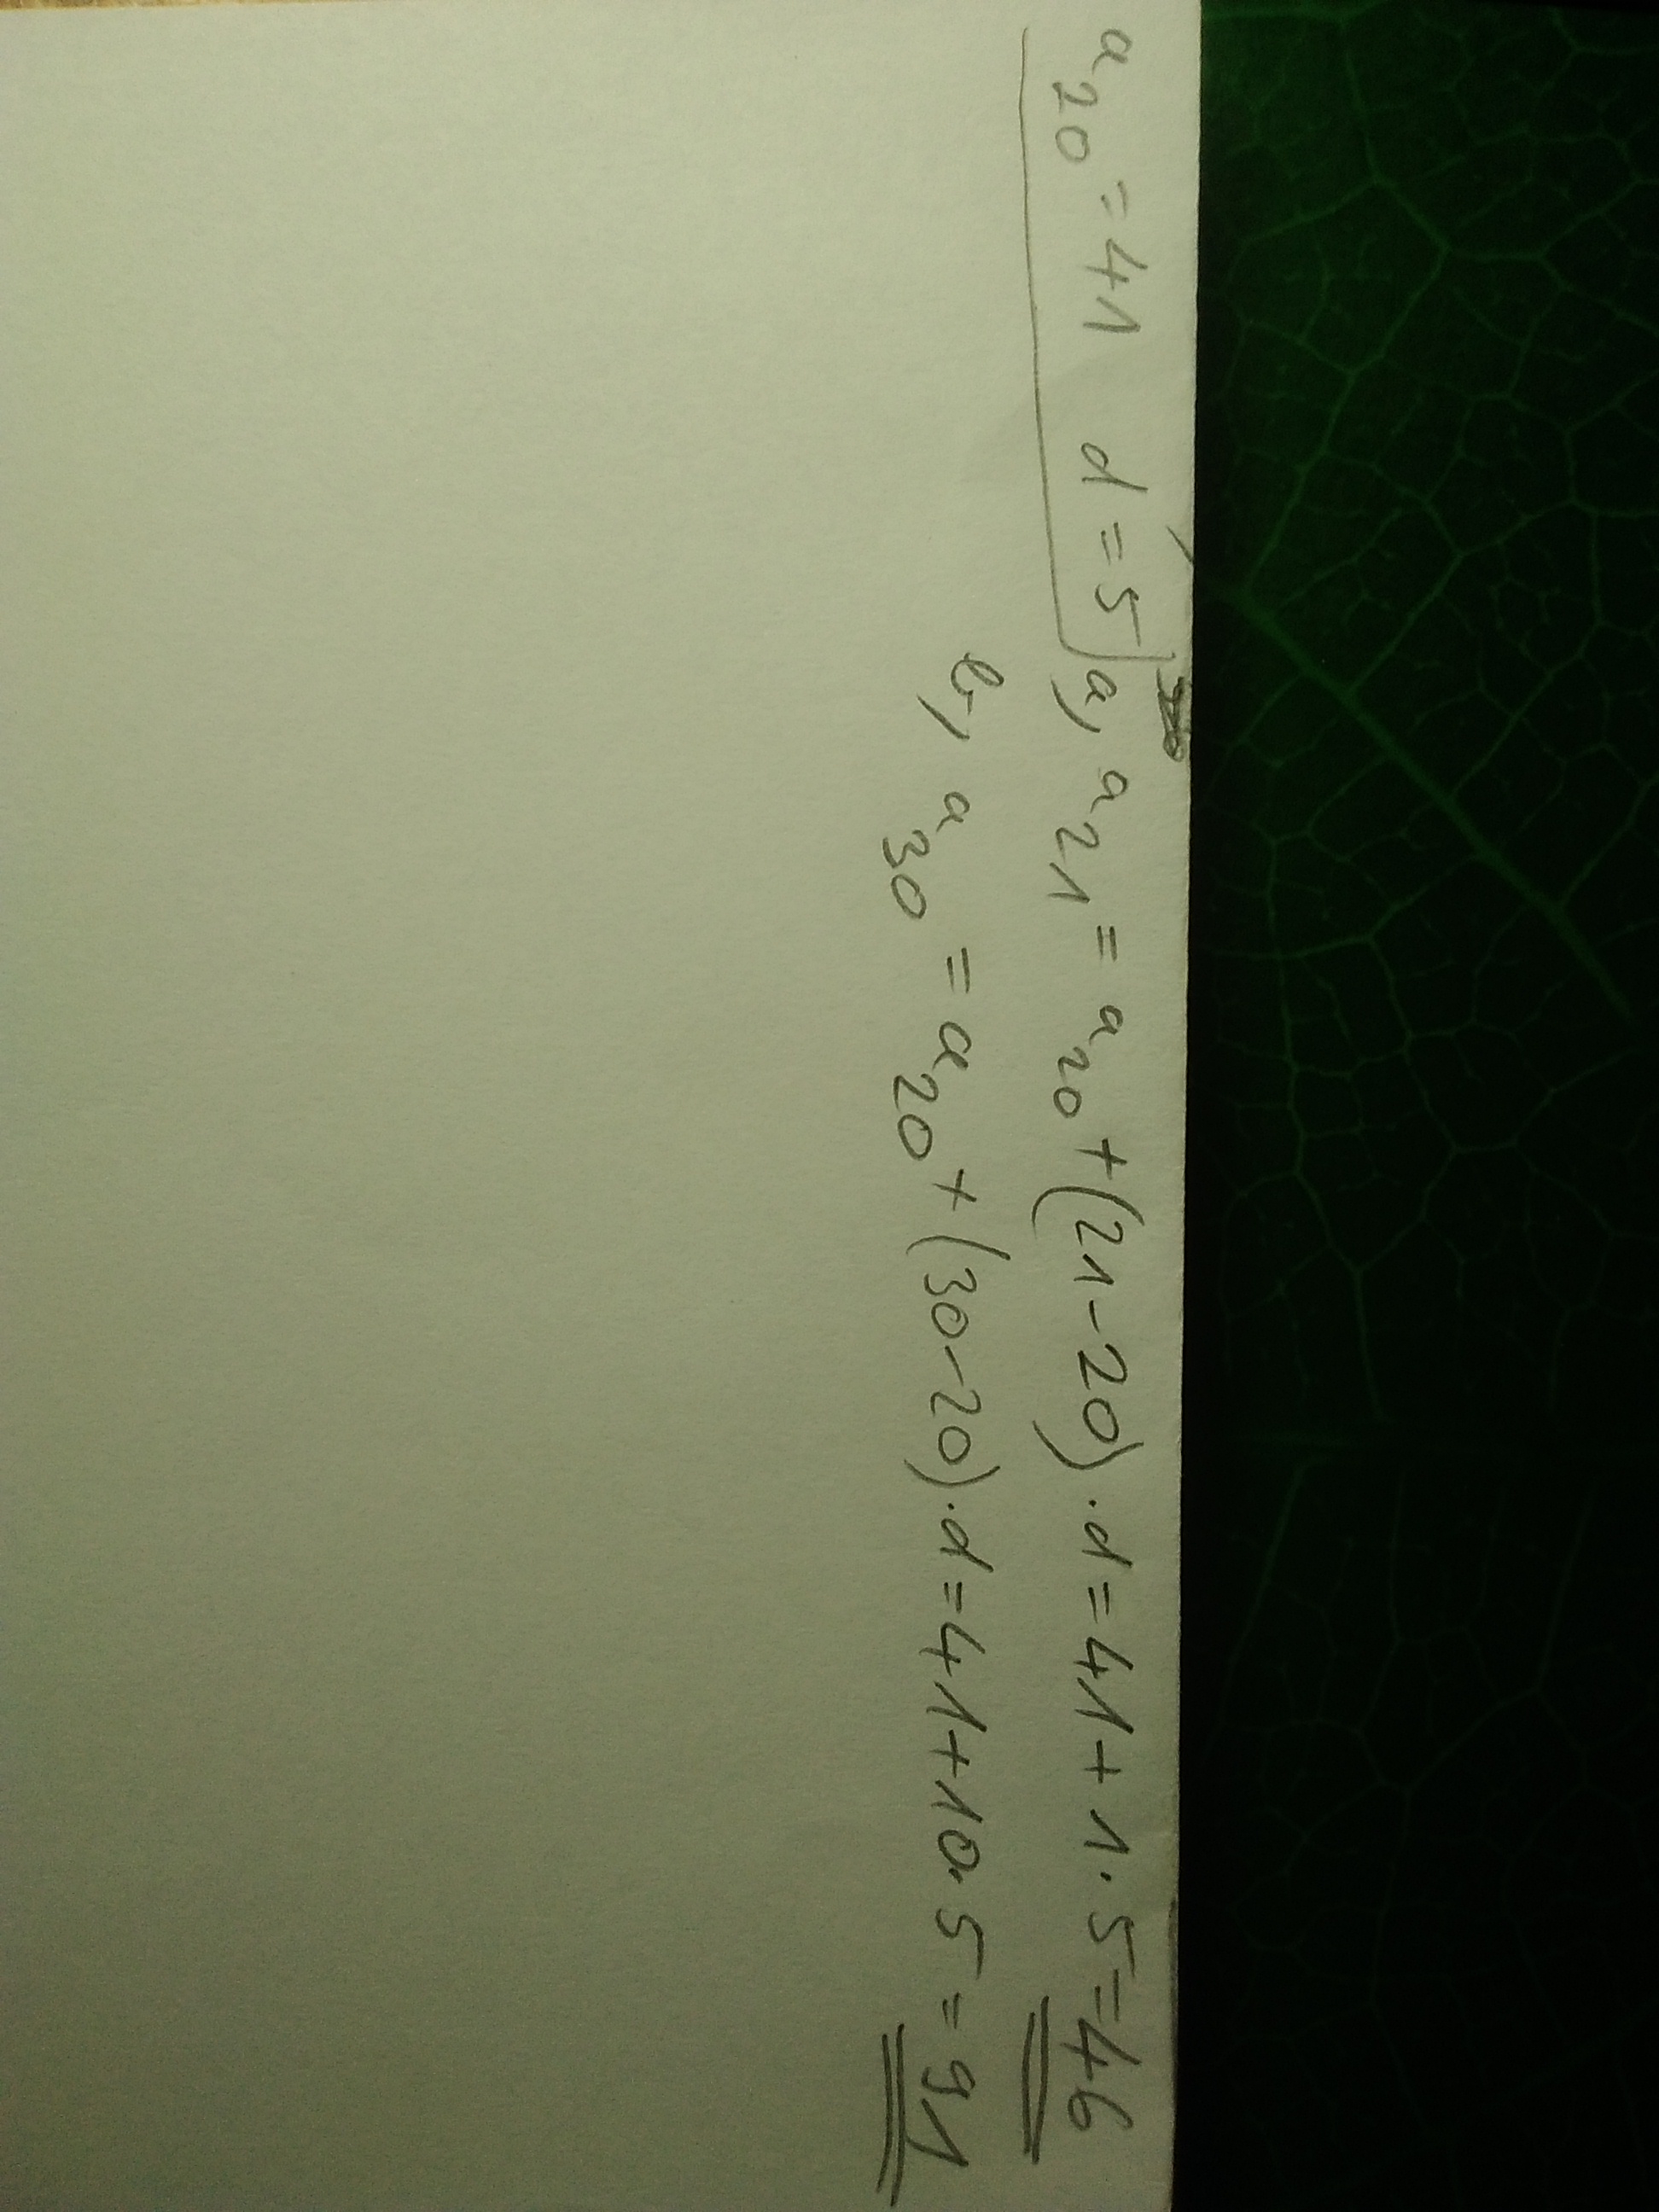 a₂₀ = 41 d = 5 a, a₂₁ = a₂₀ + (21 - 20) · d = 41 + 1 · 5 = 46
b, a₃₀ = a₂₀ + (30 - 20) · d = 41 + 10 · 5 = 91